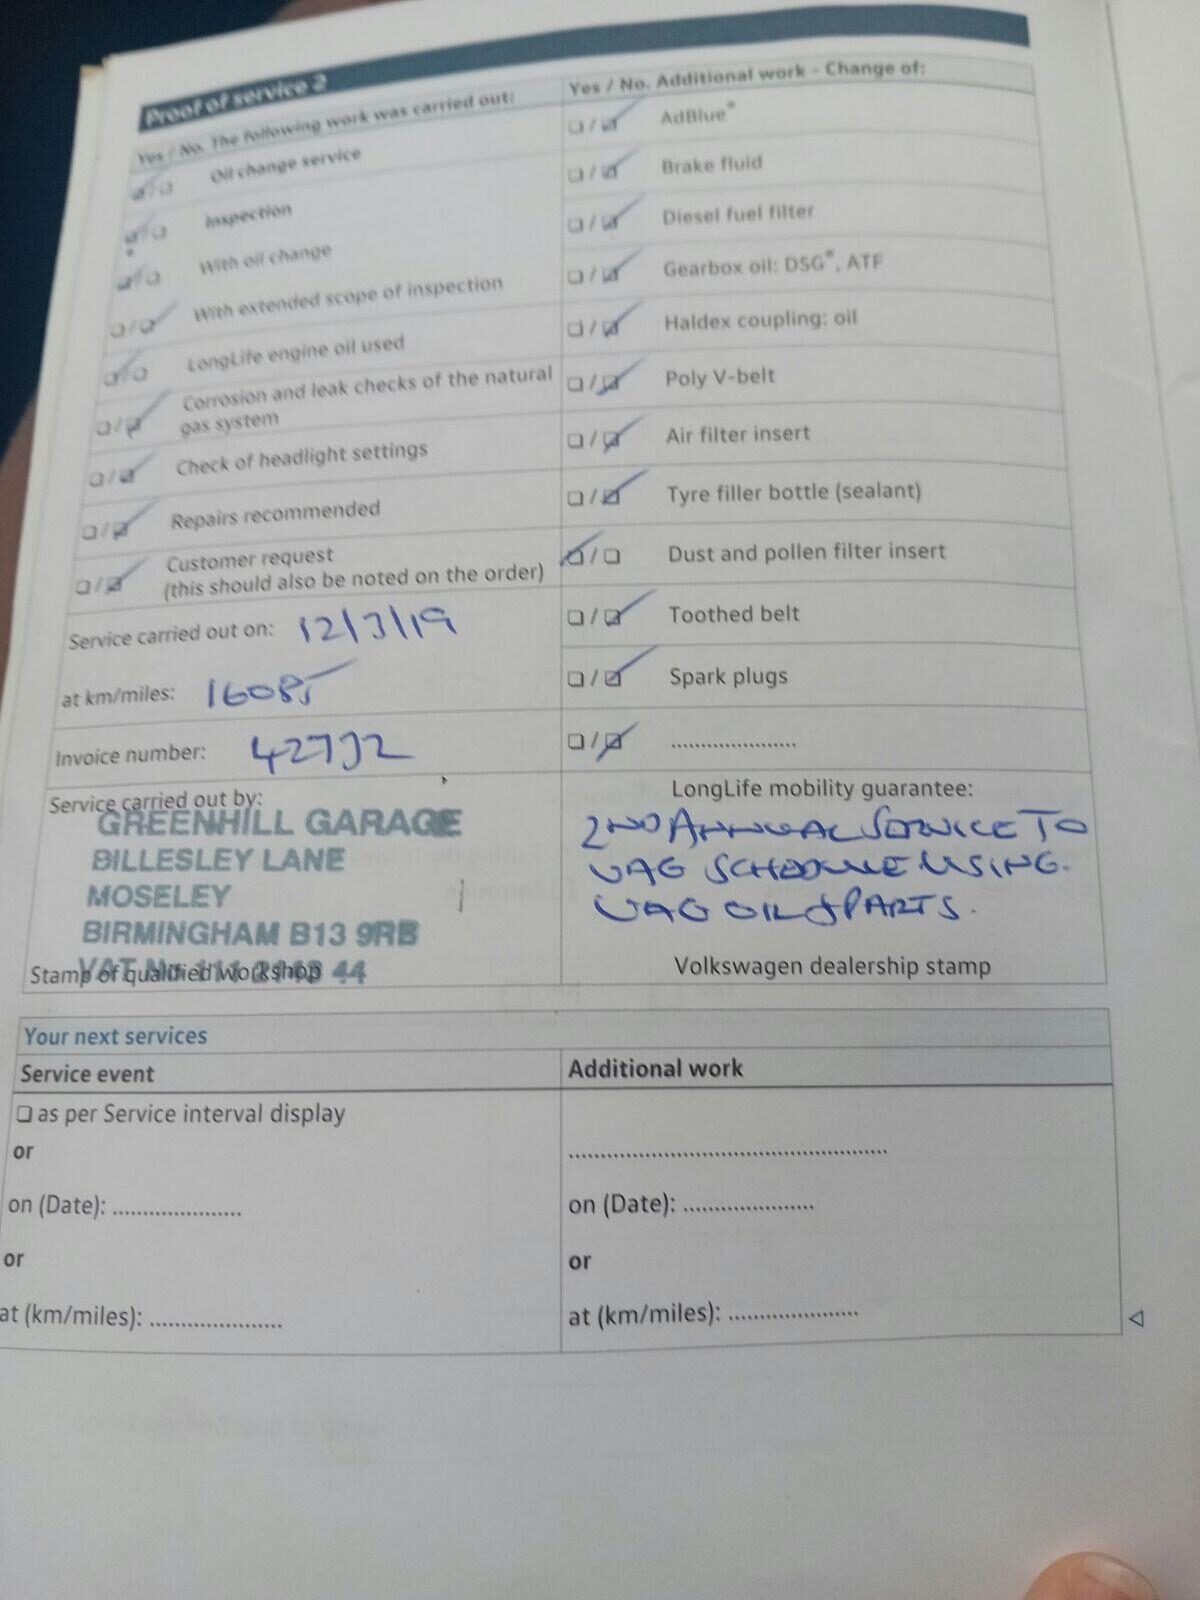 Proof of service 2
Yes / No. The following work was carried out:
Oil change service
Inspection
With oil change
With extended scope of inspection
LongLife engine oil used
Corrosion and leak checks of the natural
gas system
Check of headlight settings
Repairs recommended
Customer request
(this should also be noted on the order)
Service carried out on: 12/3/19
at km/miles: 16085
Invoice number:
Service carried out by:
GREENHILL GARAGE
BILLESLEY LANE
MOSELEY
BIRMINGHAM B13 9RB
VAT 44
Stamp of qualified workshop
Yes / No. Additional work - Change of:
AdBlue®
Brake fluid
Diesel fuel filter
Gearbox oil: DSG®, ATF
Haldex coupling: oil
Poly V-belt
Air filter insert
Tyre filler bottle (sealant)
Dust and pollen filter insert
Toothed belt
Spark plugs
......................
LongLife mobility guarantee:
2ND ANNUAL SERVICE TO
VAG SCHEDULE USING.
VAG OIL & PARTS.
Volkswagen dealership stamp
Your next services
Service event
as per Service interval display
or
on (Date): ......................
or
at (km/miles): ......................
Additional work
......................................................
on (Date): ......................
or
at (km/miles): ......................